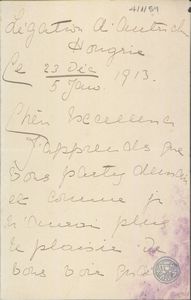 4/1/59
Légation d'Autriche
Hongrie
Le 23 Déc 1913.
5 Janv.
Chère Excellence
J'apprends que
vous partez demain
et comme je
n'aurai plus
le plaisir de
vous voir